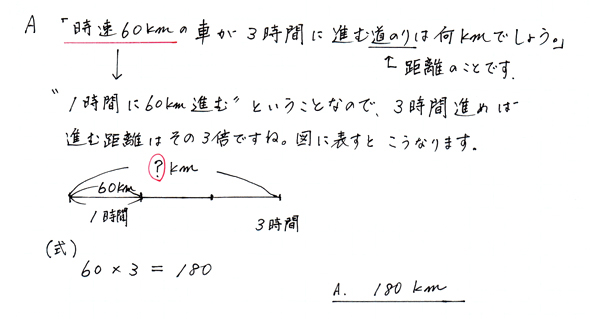 A 「時速60kmの車が3時間に進む道のりは何kmでしょう。」
↑距離のことです.
"1時間に60km進む"ということなので、3時間進めば
進む距離はその3倍ですね。図に表すとこうなります.
? km
60km
1時間
3時間
(式)
60×3=180
A. 180km